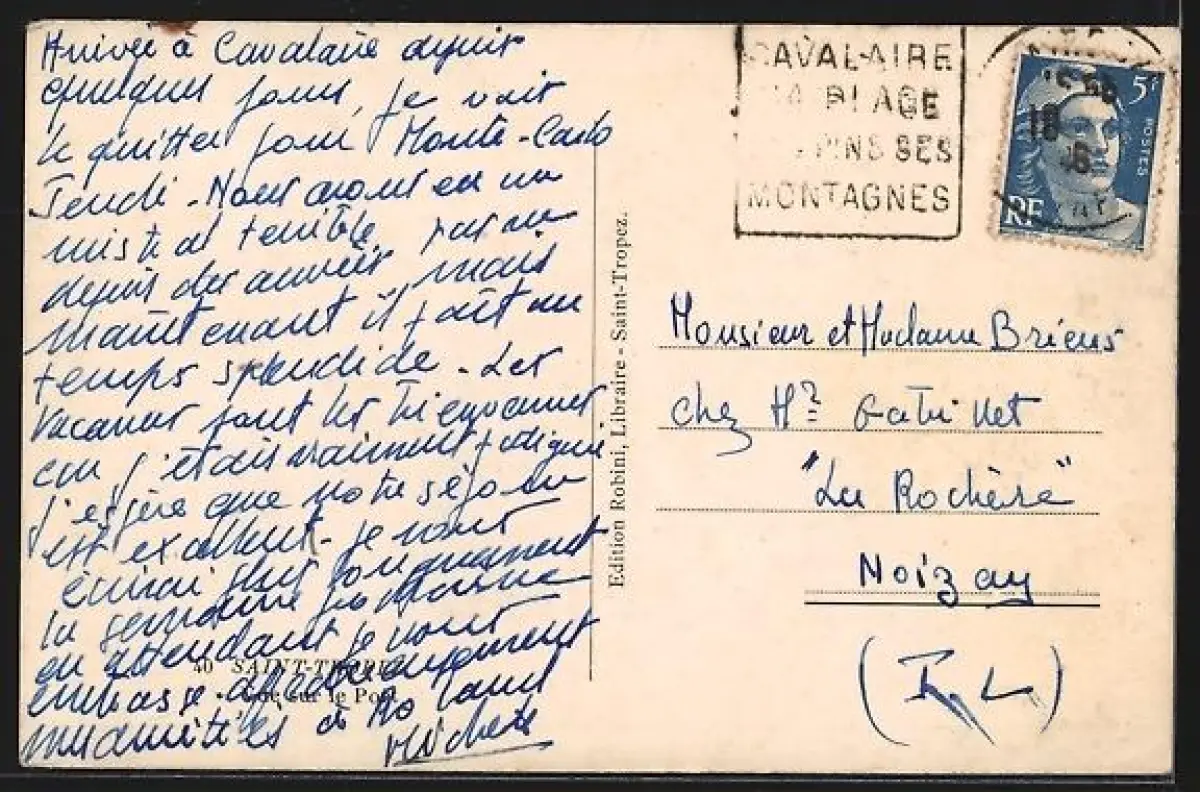 Arrivée à Cavalaire depuis
quelques jours, je vais
le quitter pour Monte-Carlo
Jeudi - Nous avons eu un
mistral terrible,
depuis des années mais
maintenant il fait un
temps splendide - Les
vacances sont les bienvenues
car j'étais vraiment fatiguée
j'espère que votre séjour
est excellent - je vous
écrirai plus longuement
la semaine prochaine
en attendant je vous
embrasse affectueusement
mes amitiés à
40 SAINT-TROPEZ
Vue sur le Port
Edition Robini, Libraire - Saint-Tropez.
CAVALAIRE
SA PLAGE
PINS SES
MONTAGNES
18
5F
POSTES
RF
Monsieur et Madame Briens
chez Mr
"La Rochère"
Noizay
(I, L)